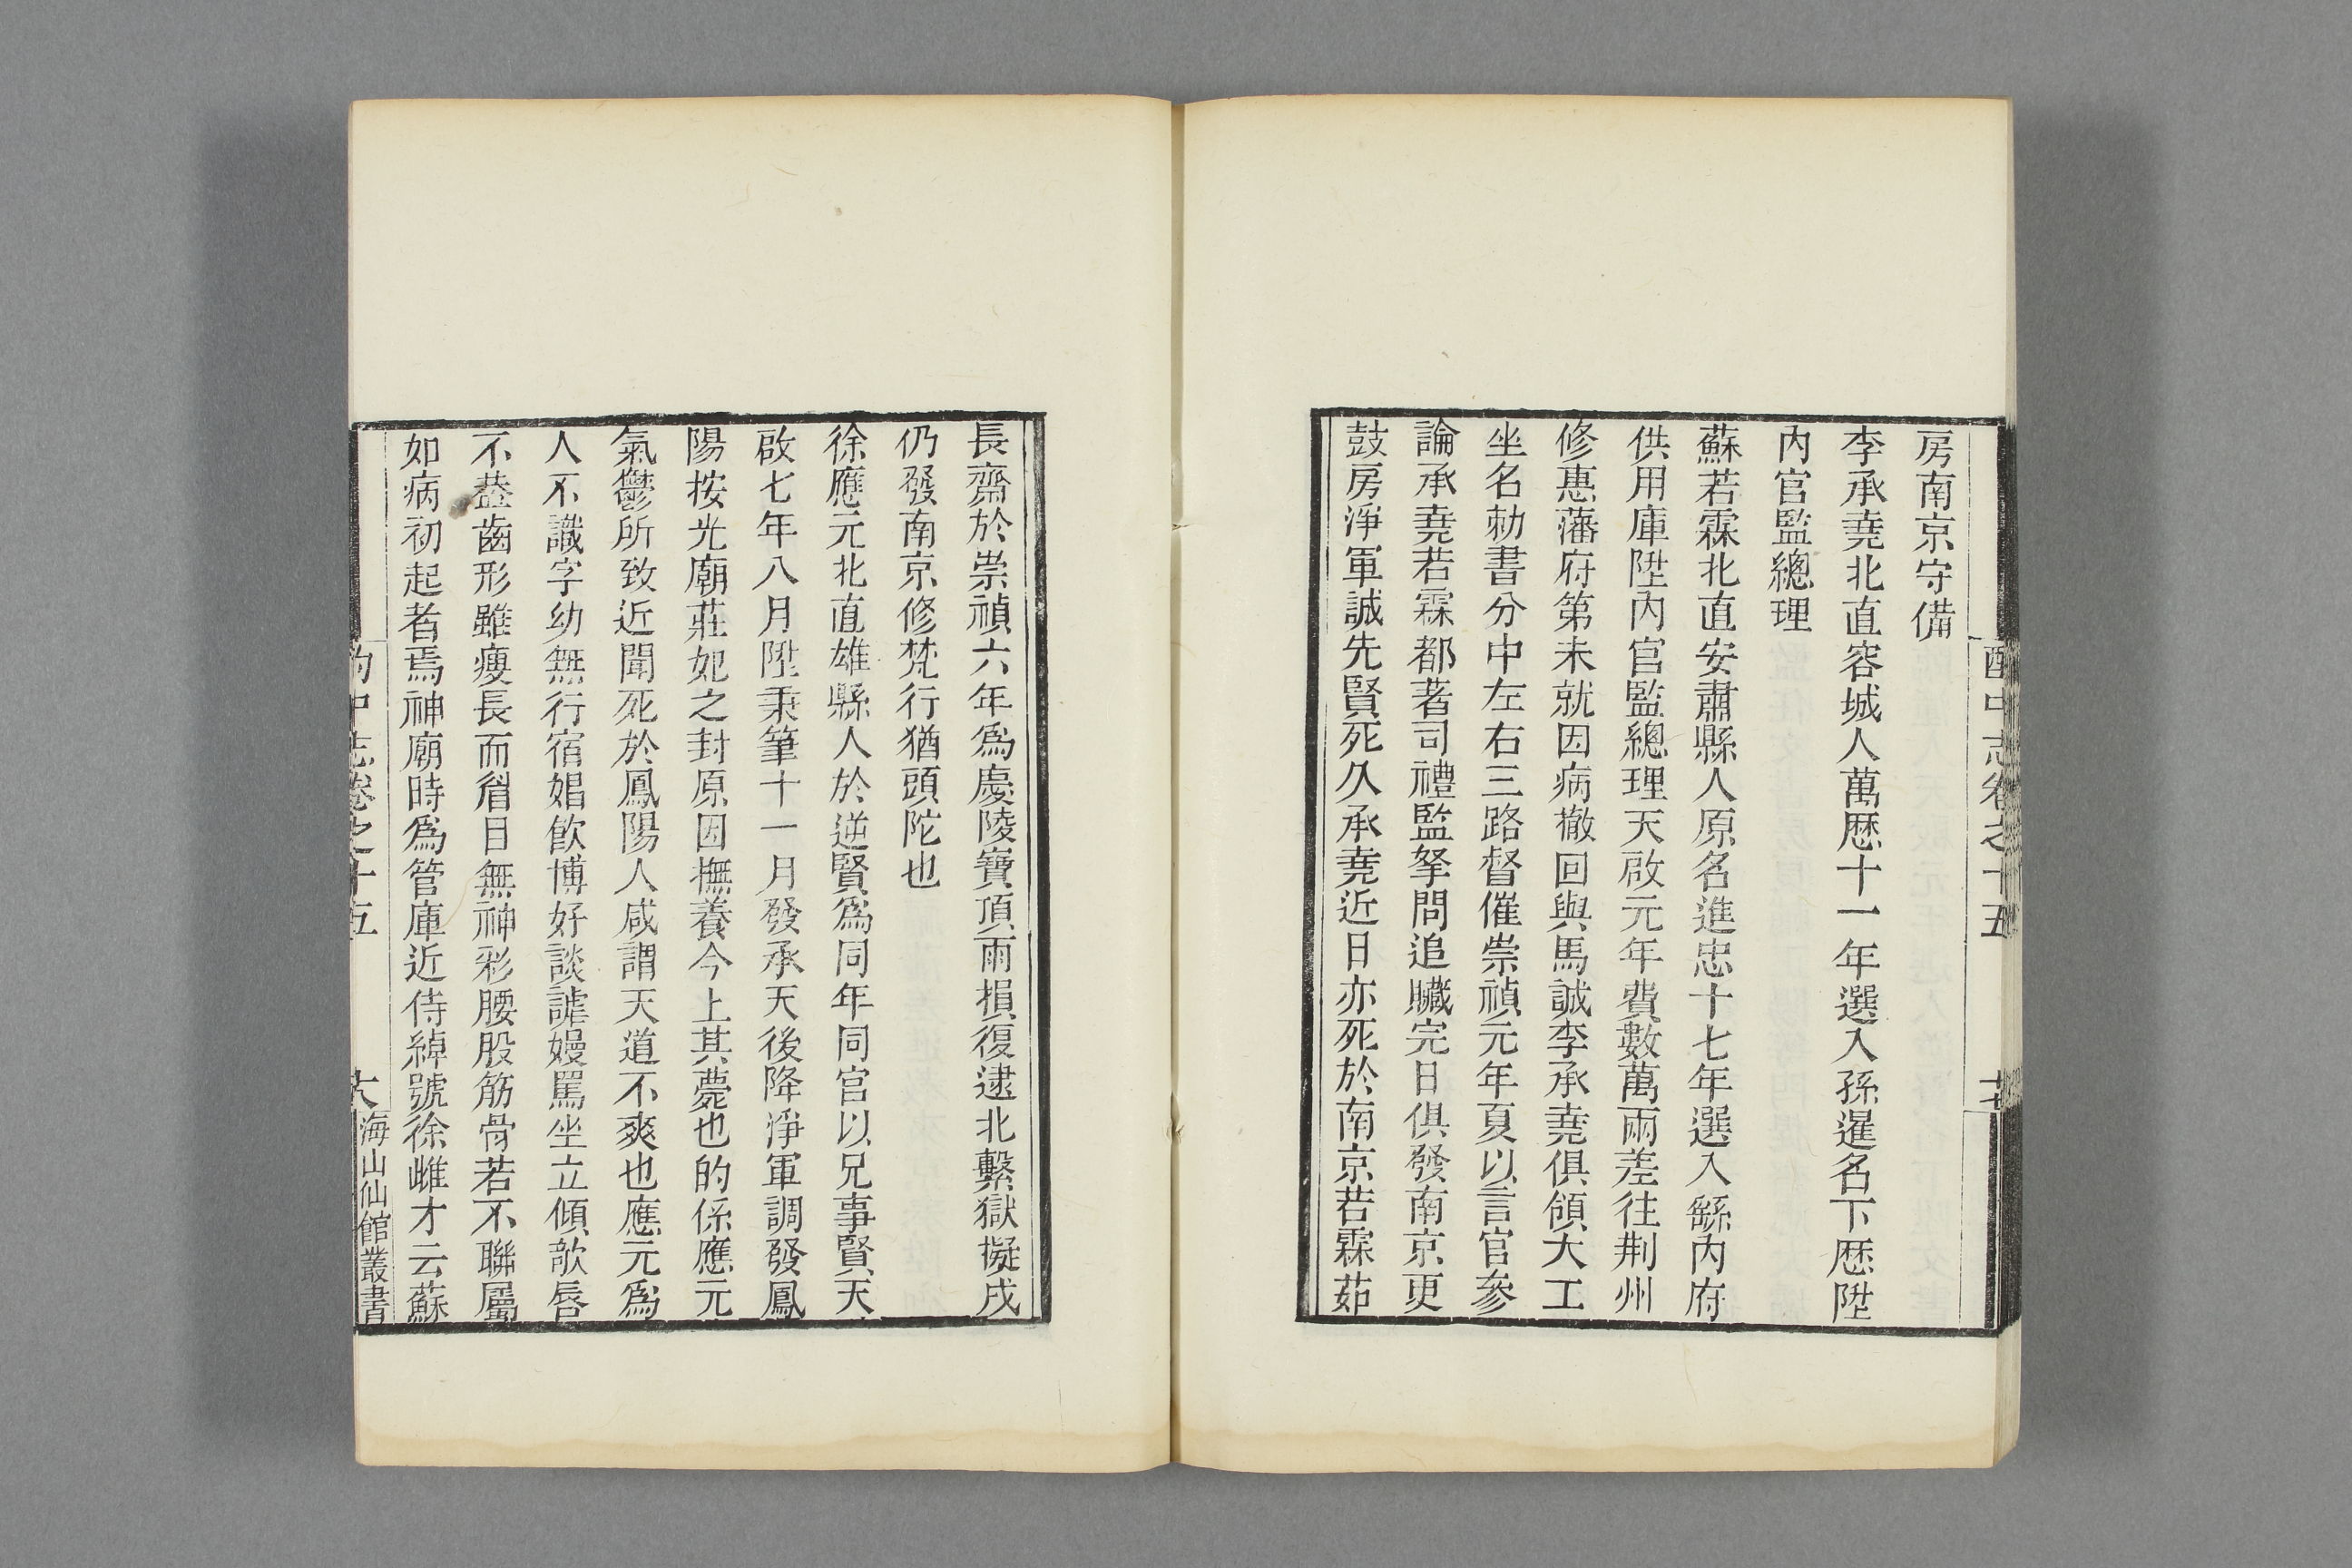 房南京守備
李承堯北直容城人萬厯十一年選入孫暹名下厯陞
內官監總理
蘇若霖北直安肅縣人原名進忠十七年選入繇內府
供用庫陞內官監總理天啟元年費數萬兩差往荆州
修惠藩府第未就因病撤回與馬誠李承堯俱領大工
坐名勅書分中左右三路督催崇禎元年夏以言官參
論承堯若霖都著司禮監拏問追贓完日俱發南京更
鼓房淨軍誠先賢死久承堯近日亦死於南京若霖茹
酌中志卷之十五
長齋於崇禎六年為慶陵寶頂雨損復逮北繫獄擬戍
仍發南京修梵行猶頭陀也
徐應元北直雄縣人於逆賢為同年同官以兄事賢天
啟七年八月陞秉筆十一月發承天後降淨軍調發鳳
陽按光廟莊妃之封原因撫養今上其薨也的係應元
氣鬱所致近聞死於鳳陽人咸謂天道不爽也應元為
人不識字幼無行宿娼飲博好談謔嫚罵坐立傾欹唇
不葢齒形雖瘦長而眉目無神彩腰股筋骨若不聯屬
如病初起者焉神廟時為管庫近侍綽號徐雌才云蘇
酌中志卷之十五
海山仙館叢書